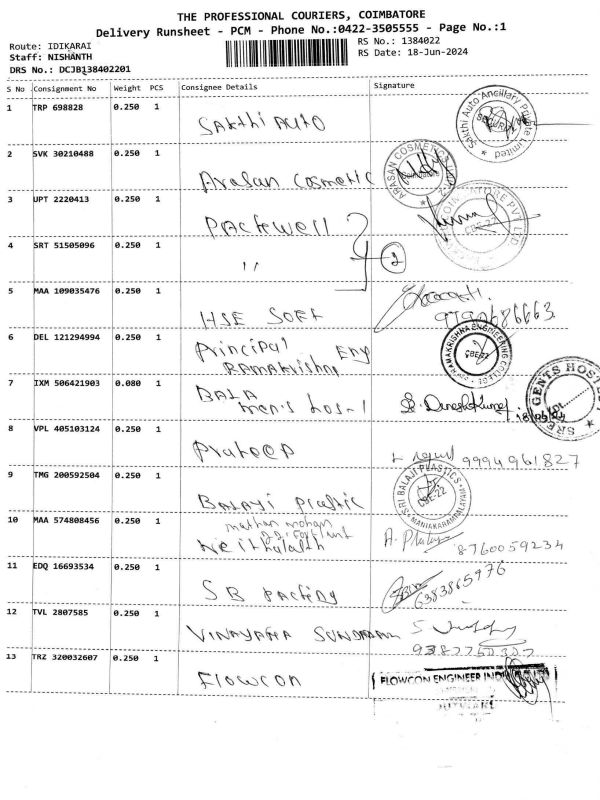 THE PROFESSIONAL COURIERS, COIMBATORE
Delivery Runsheet - PCM - Phone No.:0422-3505555 - Page No.:1
Route: IDIKARAI
RS No.: 1384022
Staff: NISHANTH
RS Date: 18-Jun-2024
DRS No.: DCJB138402201
S No Consignment No Weight PCS Consignee Details Signature
1 TRP 698828 0.250 1 Sakthi Auto
Sakthi Auto Ancillary Private Limited
SECURITY
2 SVK 30210488 0.250 1 Arasan Cosmetic
ARASAN COSMETICS
Coimbatore
3 UPT 2220413 0.250 1 Packwell
PVT. LTD.
CBE-22
4 SRT 51505096 0.250 1 " 2
5 MAA 109035476 0.250 1 HSE SOFT
6 DEL 121294994 0.250 1 Principal Eng
Ramakrishna
RAMAKRISHNA ENGINEERING COLLEGE
CBE-22
7 IXM 506421903 0.080 1 BALA
men's hos-l
Dineshkumar
GENTS HOSTEL
8 VPL 405103124 0.250 1 Prateep
9994961827
9 TMG 200592504 0.250 1 Balaji plastic
SRI BALAJI PLASTICS
CBE-22
MANIAKARAMPALAYAM
10 MAA 574808456 0.250 1 mathan mohan
8760059234
11 EDQ 16693534 0.250 1 SB Packing
6383865976
12 TVL 2807585 0.250 1 VINAYAGA SUNDARAM
13 TRZ 320032607 0.250 1 Flowcon
FLOWCON ENGINEER IND